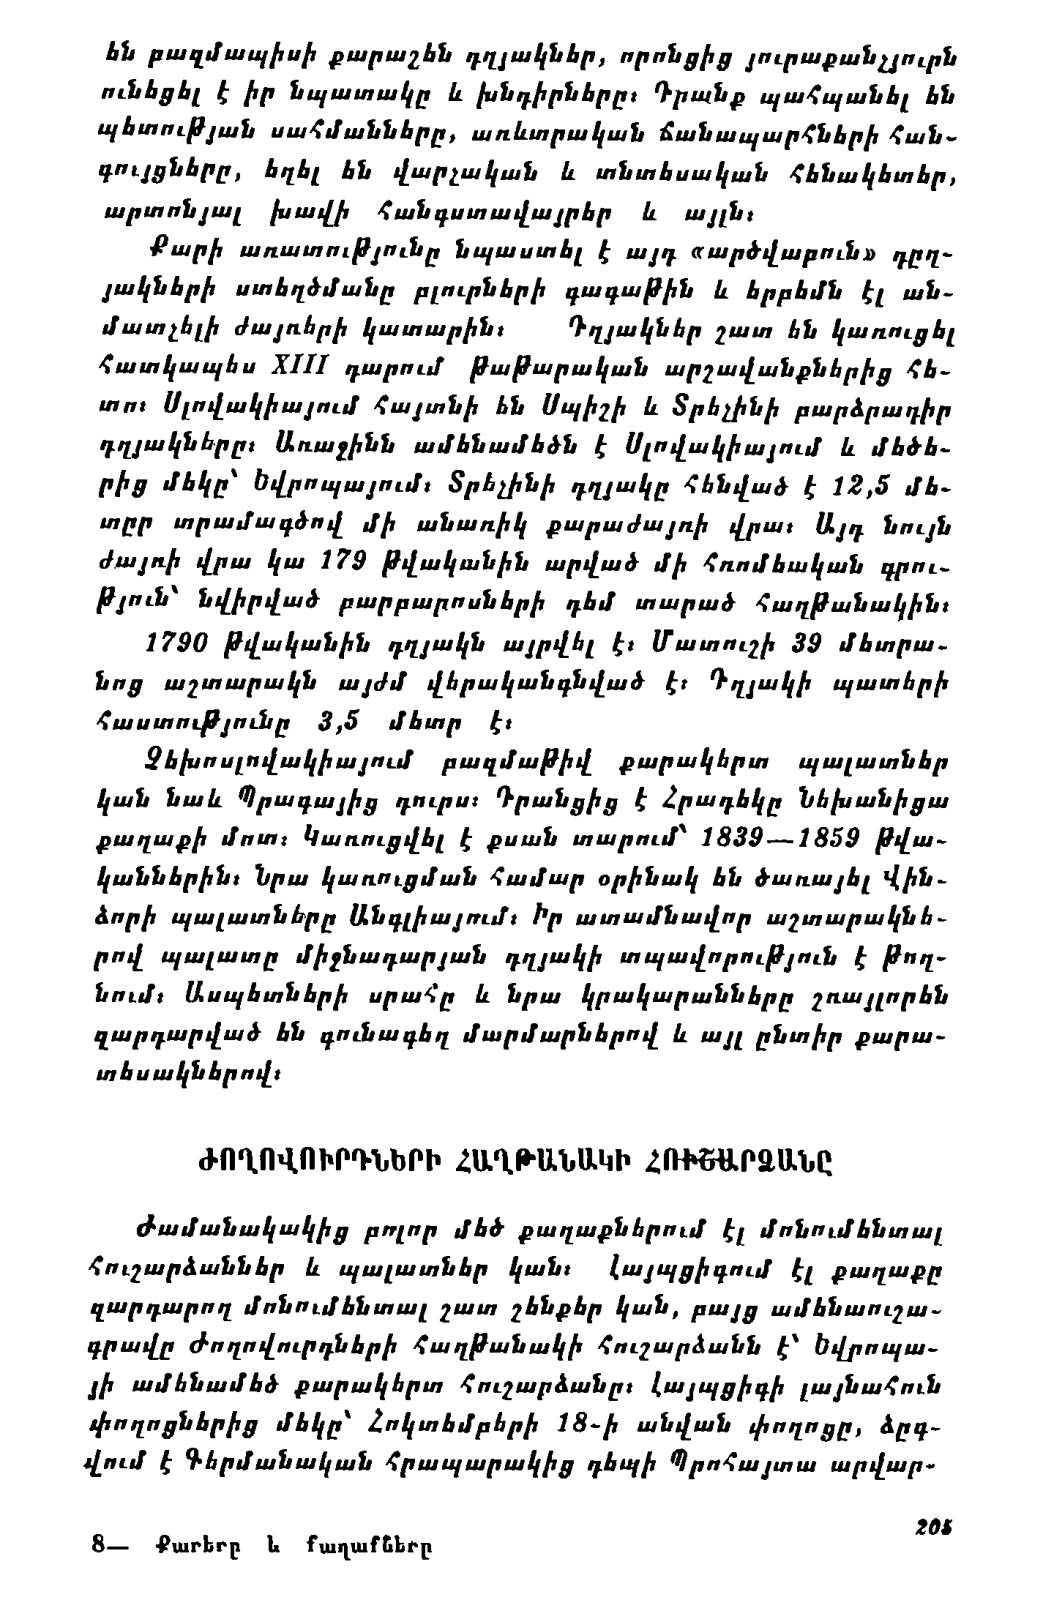 են բազմապիսի քարաշեն դղյակներ, որոնցից յուրաքանչյուրն
ունեցել է իր նպատակը և խնդիրները։ Դրանք պահպանել են
պետության սահմանները, առևտրական ճանապարհների հան-
գույցները, եղել են վարչական և տնտեսական հենակետեր,
արտոնյալ խավի հանգստավայրեր և այլն։
Քարի առատությունը նպաստել է այդ «արծվաբուն» դըղ-
յակների ստեղծմանը բլուրների գագաթին և երբեմն էլ ան-
մատչելի ժայռերի կատարին։ Դղյակներ շատ են կառուցել
հատկապես XIII դարում թաթարական արշավանքներից հե-
տո։ Սլովակիայում հայտնի են Սպիշի և Տրեչինի բարձրադիր
դղյակները։ Առաջինն ամենամեծն է Սլովակիայում և մեծե-
րից մեկը՝ Եվրոպայում։ Տրեչինի դղյակը հենված է 12,5 մե-
տըր տրամագծով մի անառիկ քարաժայռի վրա։ Այդ նույն
ժայռի վրա կա 179 թվականին արված մի հռոմեական գրու-
թյուն՝ նվիրված բարբարոսների դեմ տարած հաղթանակին։
1790 թվականին դղյակն այրվել է։ Մատուշի 39 մետրա-
նոց աշտարակն այժմ վերականգնված է։ Դղյակի պատերի
հաստությունը 3,5 մետր է։
Չեխոսլովակիայում բազմաթիվ քարակերտ պալատներ
կան նաև Պրագայից դուրս։ Դրանցից է Հրադեկը Նեխանիցա
քաղաքի մոտ։ Կառուցվել է քսան տարում՝ 1839—1859 թվա-
կաններին։ Նրա կառուցման համար օրինակ են ծառայել Վին-
ձորի պալատները Անգլիայում։ Իր ատամնավոր աշտարակնե-
րով պալատը միջնադարյան դղյակի տպավորություն է թող-
նում։ Ասպետների սրահը և նրա կրակարանները շռայլորեն
զարդարված են գունագեղ մարմարներով և այլ ընտիր քարա-
տեսակներով։
ԺՈՂՈՎՈՒՐԴՆԵՐԻ ՀԱՂԹԱՆԱԿԻ ՀՈՒՇԱՐՁԱՆԸ
Ժամանակակից բոլոր մեծ քաղաքներում էլ մոնումենտալ
հուշարձաններ և պալատներ կան։ Լայպցիգում էլ քաղաքը
զարդարող մոնումենտալ շատ շենքեր կան, բայց ամենաուշա-
գրավը Ժողովուրդների հաղթանակի հուշարձանն է՝ Եվրոպա-
յի ամենամեծ քարակերտ հուշարձանը։ Լայպցիգի լայնահուն
փողոցներից մեկը՝ Հոկտեմբերի 18-ի անվան փողոցը, ձըգ-
վում է Գերմանական հրապարակից դեպի Պրոհայտա արվար-
205
8— Քարերը և քաղաքները